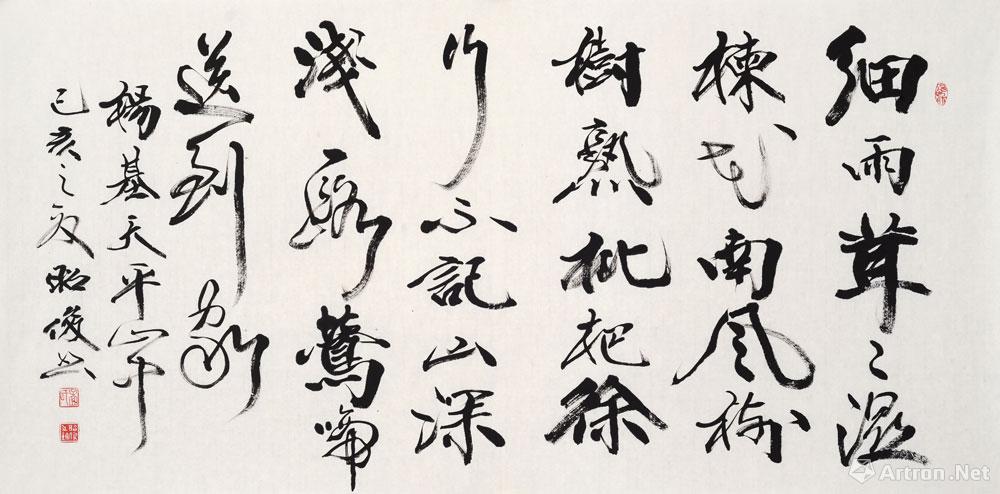 細雨茸々湿
楝花南風樹
樹熟枇杷徐
行不記山深
淺路鶯啼
送到家
楊基天平山中
己亥之夏昭俊书
Artron.Net